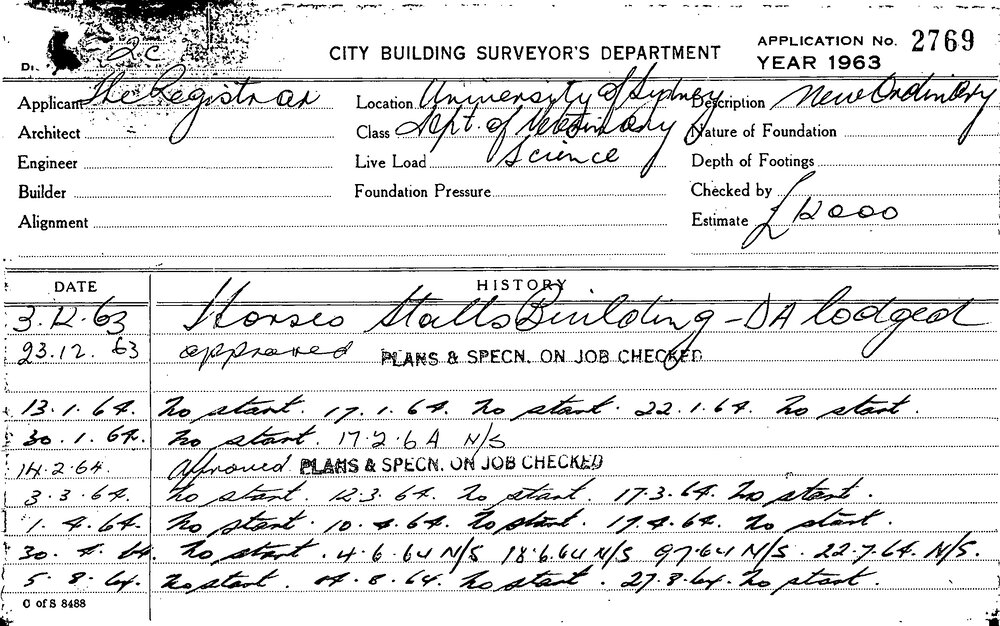 CITY BUILDING SURVEYOR'S DEPARTMENT
APPLICATION No. 2769
YEAR 1963
Applicant The Registrar
Location University of Sydney
Description New Ordinary
Architect
Class Dept. of Veterinary
Nature of Foundation
Engineer
Live Load Science
Depth of Footings
Builder
Foundation Pressure
Checked by
Alignment
Estimate £12000
DATE HISTORY
3.12.63 Horses Stalls Building - DA lodged
23.12.63 approved PLANS & SPECN. ON JOB CHECKED
13.1.64. No start. 17.1.64. No start. 22.1.64. No start.
30.1.64. No start. 17.2.64 N/S
14.2.64. Approved PLANS & SPECN. ON JOB CHECKED
3.3.64. No start. 12.3.64. No start. 17.3.64. No start.
1.4.64. No start. 10.4.64. No start. 17.4.64. No start.
30.4.64. No start. 4.6.64 N/S 18.6.64 N/S 9.7.64 N/S. 22.7.64. N/S.
5.8.64. No start. 8.64. No start. 27.8.64. No start.
C of S 8488